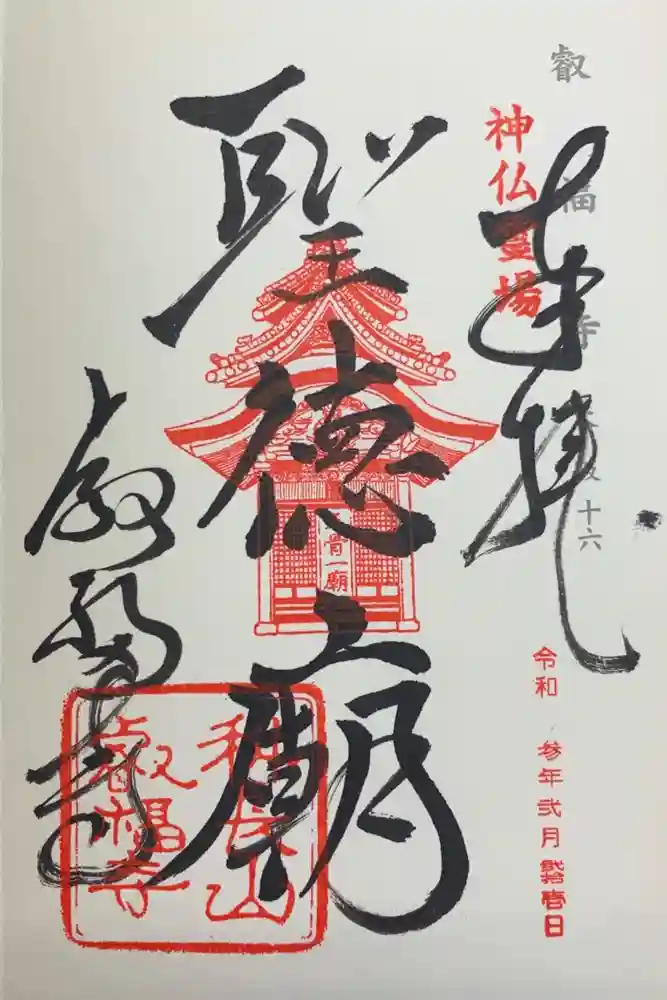 叡福寺
大阪十六
神仏霊場
奉拝
令和 参年弐月弐拾壱日
聖徳廟
骨一廟
叡福寺
磯長山
叡福寺